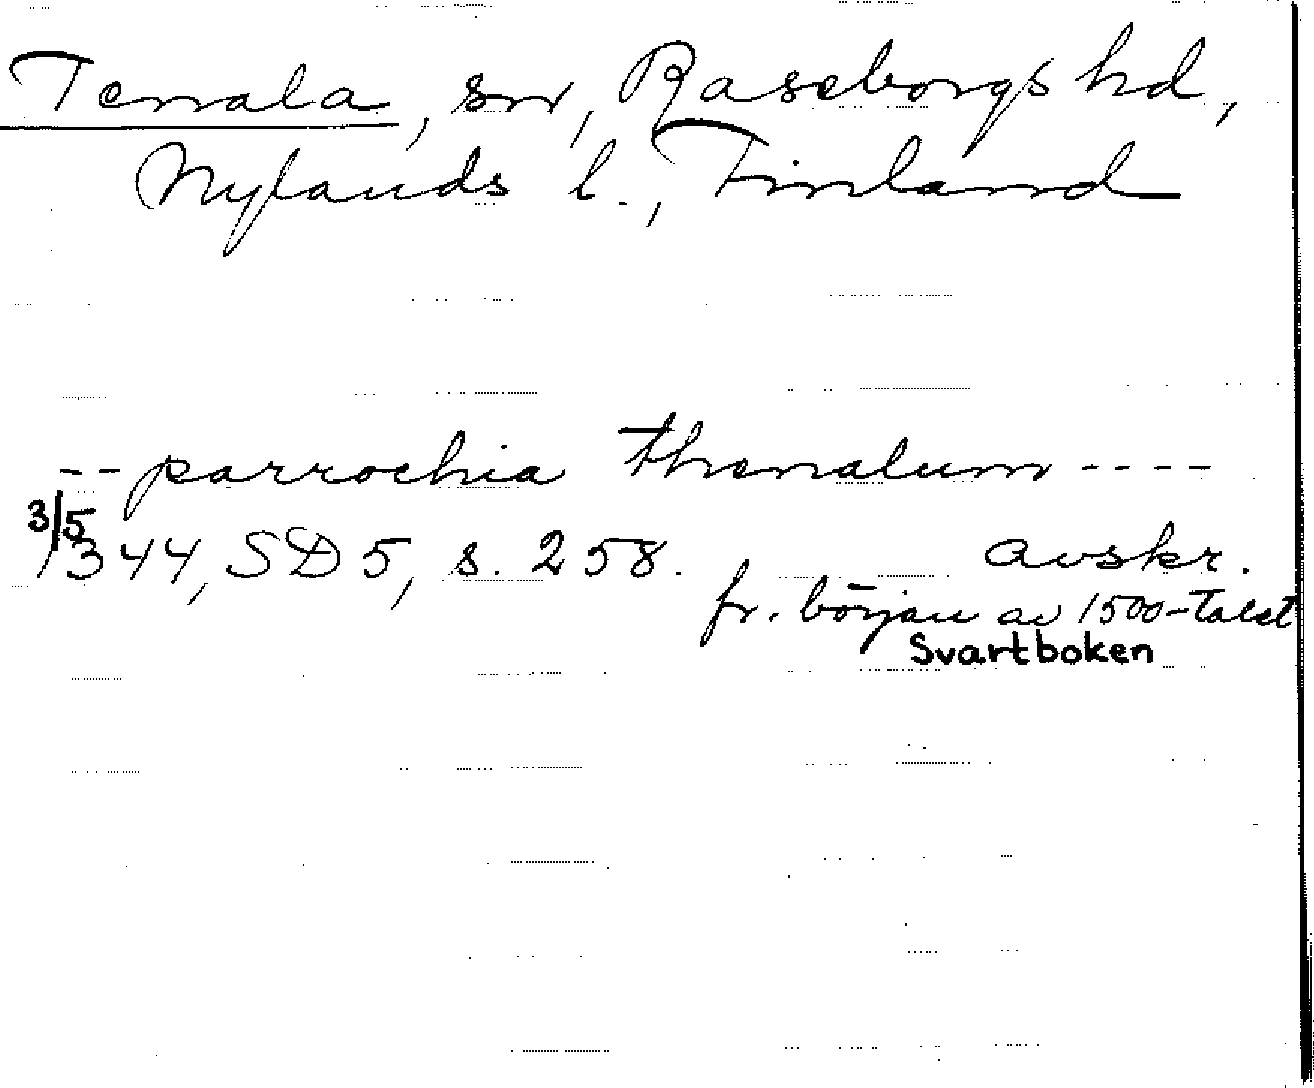 Tenala, sn, Raseborgs hd,
Nylands l., Finland
-- parrochia thenalum ----
3/5
1344, SD 5, s. 258. avskr.
fr. början av 1500-talet
Svartboken